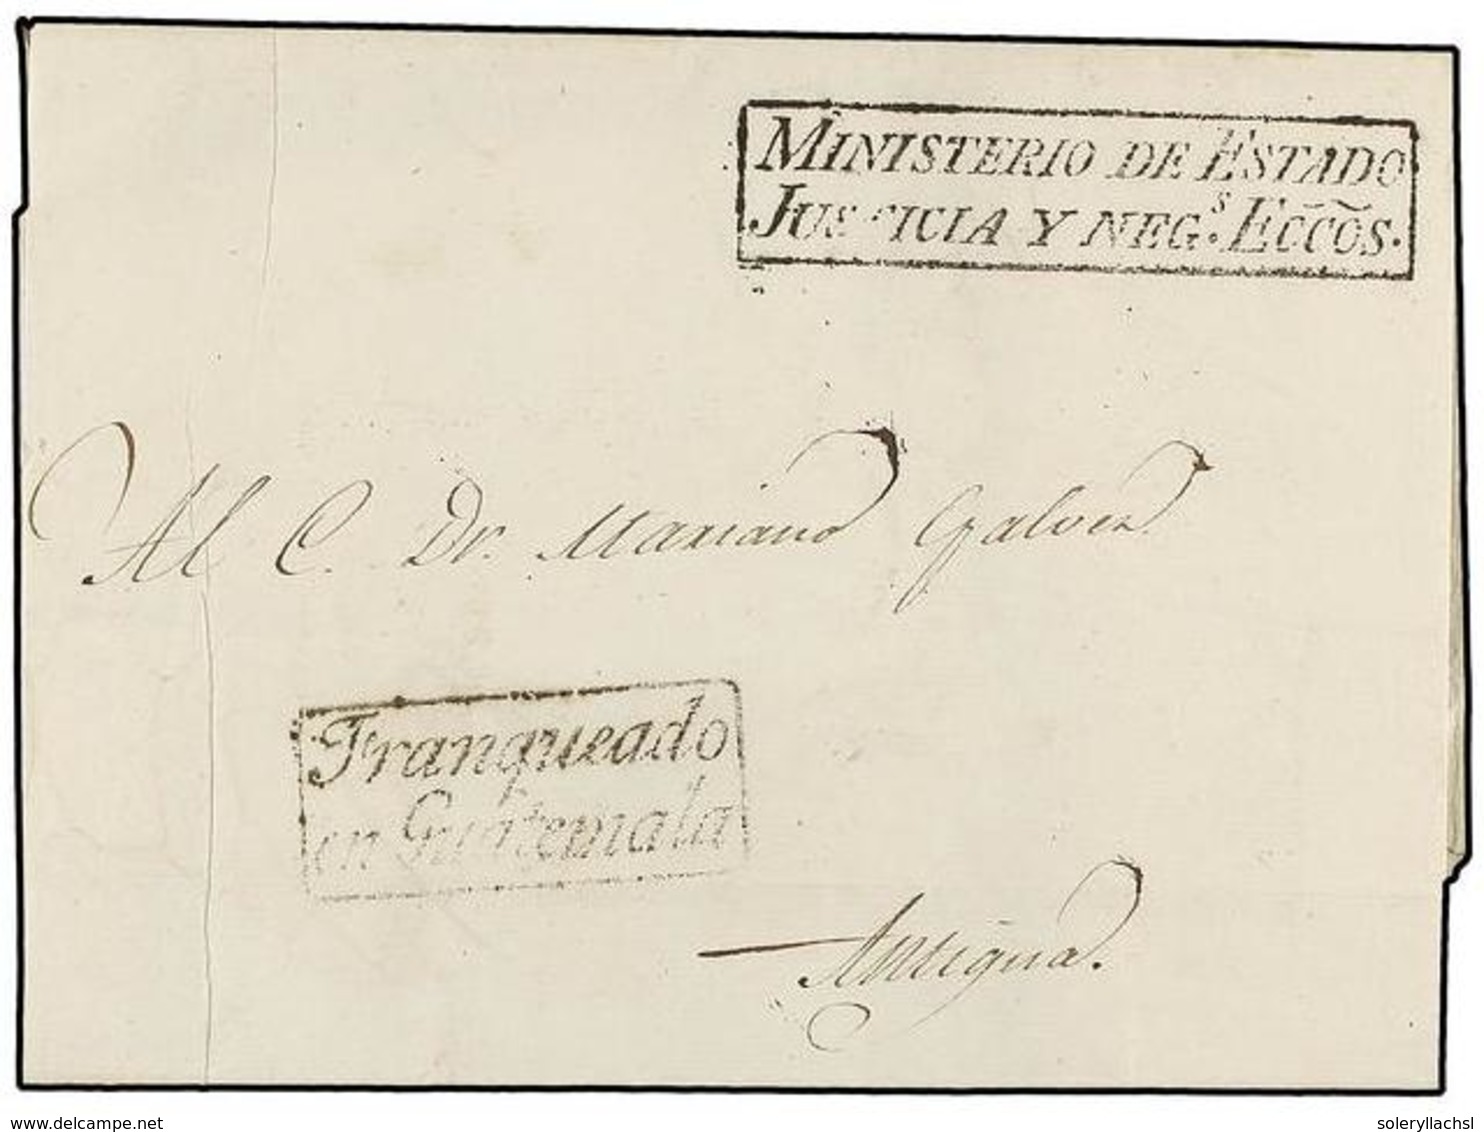 MINISTERIO DE ESTADO
JUSTICIA Y NEG.s ECCOS.
Al C. Dr. Mariano Galvez
Franqueado
en Guatemala
Antigua.
www.delcampe.net
soleryllachsl